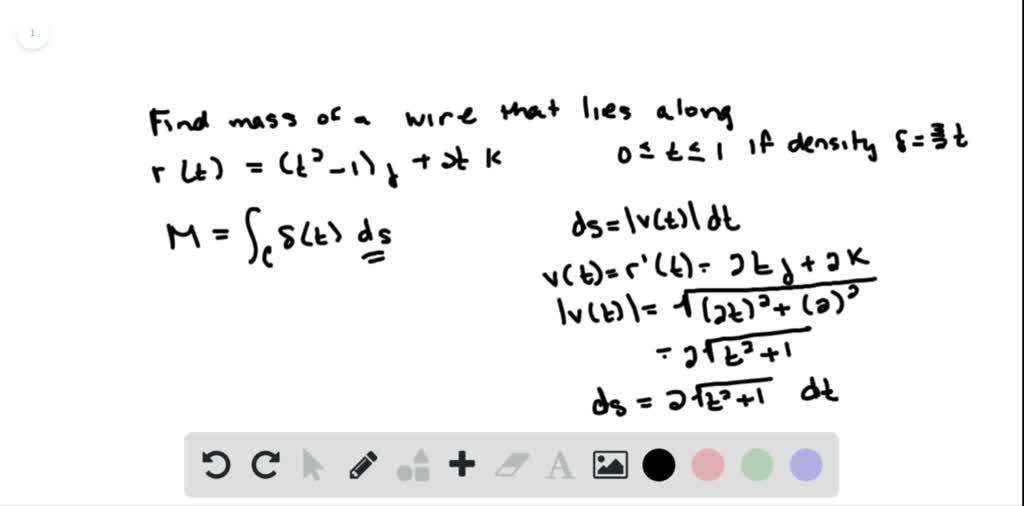 1
Find mass of a wire that lies along
r(t) = (t²-1)j + 2t k 0 ≤ t ≤ 1 if density δ = 3/2 t
M = ∫_C δ(t) ds
ds = |v(t)| dt
v(t) = r'(t) = 2t j + 2k
|v(t)| = √((2t)² + (2)²)
= 2√(t²+1)
ds = 2√(t²+1) dt
A